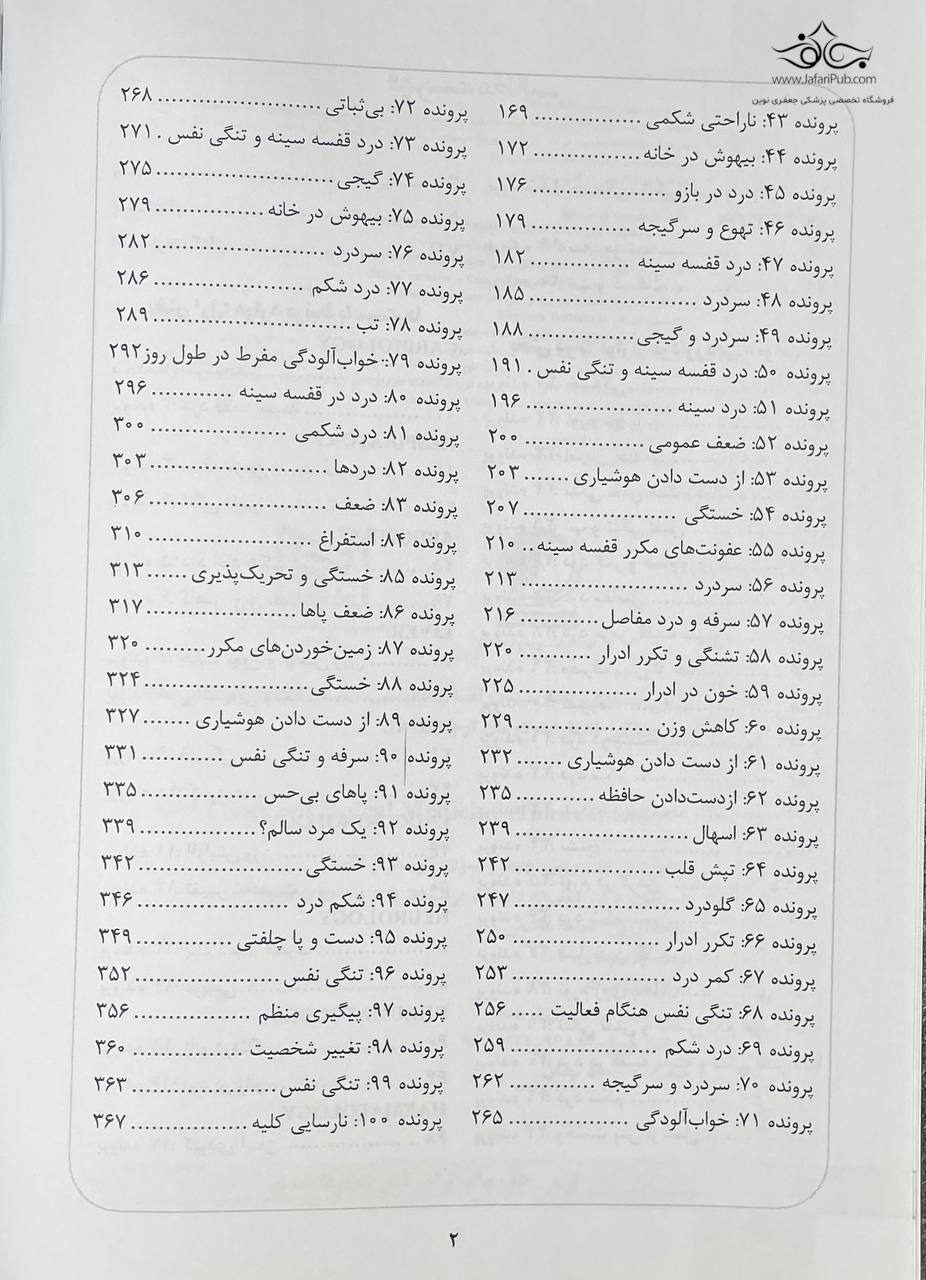 www.JafariPub.com
فروشگاه تخصصی پزشکی جعفری نوین
پرونده ۴۳: ناراحتی شکمی ................ ۱۶۹
پرونده ۴۴: بیهوش در خانه ................ ۱۷۲
پرونده ۴۵: درد در بازو .................... ۱۷۶
پرونده ۴۶: تهوع و سرگیجه ................ ۱۷۹
پرونده ۴۷: درد قفسه سینه ............... ۱۸۲
پرونده ۴۸: سردرد ......................... ۱۸۵
پرونده ۴۹: سردرد و گیجی ................ ۱۸۸
پرونده ۵۰: درد قفسه سینه و تنگی نفس . ۱۹۱
پرونده ۵۱: درد سینه ...................... ۱۹۶
پرونده ۵۲: ضعف عمومی .................. ۲۰۰
پرونده ۵۳: از دست دادن هوشیاری ....... ۲۰۳
پرونده ۵۴: خستگی ....................... ۲۰۷
پرونده ۵۵: عفونت‌های مکرر قفسه سینه .. ۲۱۰
پرونده ۵۶: سردرد ......................... ۲۱۳
پرونده ۵۷: سرفه و درد مفاصل ............ ۲۱۶
پرونده ۵۸: تشنگی و تکرر ادرار ........... ۲۲۰
پرونده ۵۹: خون در ادرار .................. ۲۲۵
پرونده ۶۰: کاهش وزن .................... ۲۲۹
پرونده ۶۱: از دست دادن هوشیاری ....... ۲۳۲
پرونده ۶۲: ازدست‌دادن حافظه ............ ۲۳۵
پرونده ۶۳: اسهال .......................... ۲۳۹
پرونده ۶۴: تپش قلب ...................... ۲۴۲
پرونده ۶۵: گلودرد ......................... ۲۴۷
پرونده ۶۶: تکرر ادرار ...................... ۲۵۰
پرونده ۶۷: کمر درد ....................... ۲۵۳
پرونده ۶۸: تنگی نفس هنگام فعالیت ..... ۲۵۶
پرونده ۶۹: درد شکم ...................... ۲۵۹
پرونده ۷۰: سردرد و سرگیجه ............. ۲۶۲
پرونده ۷۱: خواب‌آلودگی .................. ۲۶۵
پرونده ۷۲: بی‌ثباتی ......................... ۲۶۸
پرونده ۷۳: درد قفسه سینه و تنگی نفس . ۲۷۱
پرونده ۷۴: گیجی ........................... ۲۷۵
پرونده ۷۵: بیهوش در خانه ................ ۲۷۹
پرونده ۷۶: سردرد .......................... ۲۸۲
پرونده ۷۷: درد شکم ....................... ۲۸۶
پرونده ۷۸: تب .............................. ۲۸۹
پرونده ۷۹: خواب‌آلودگی مفرط در طول روز۲۹۲
پرونده ۸۰: درد در قفسه سینه ............ ۲۹۶
پرونده ۸۱: درد شکمی ..................... ۳۰۰
پرونده ۸۲: دردها ........................... ۳۰۳
پرونده ۸۳: ضعف ........................... ۳۰۶
پرونده ۸۴: استفراغ ......................... ۳۱۰
پرونده ۸۵: خستگی و تحریک‌پذیری ...... ۳۱۳
پرونده ۸۶: ضعف پاها ....................... ۳۱۷
پرونده ۸۷: زمین‌خوردن‌های مکرر ......... ۳۲۰
پرونده ۸۸: خستگی ......................... ۳۲۴
پرونده ۸۹: از دست دادن هوشیاری ....... ۳۲۷
پرونده ۹۰: سرفه و تنگی نفس ............ ۳۳۱
پرونده ۹۱: پاهای بی‌حس .................. ۳۳۵
پرونده ۹۲: یک مرد سالم؟ .................. ۳۳۹
پرونده ۹۳: خستگی ......................... ۳۴۲
پرونده ۹۴: شکم درد ....................... ۳۴۶
پرونده ۹۵: دست و پا چلفتی ............... ۳۴۹
پرونده ۹۶: تنگی نفس ...................... ۳۵۲
پرونده ۹۷: پیگیری منظم .................. ۳۵۶
پرونده ۹۸: تغییر شخصیت ................. ۳۶۰
پرونده ۹۹: تنگی نفس ...................... ۳۶۳
پرونده ۱۰۰: نارسایی کلیه .................. ۳۶۷
۲